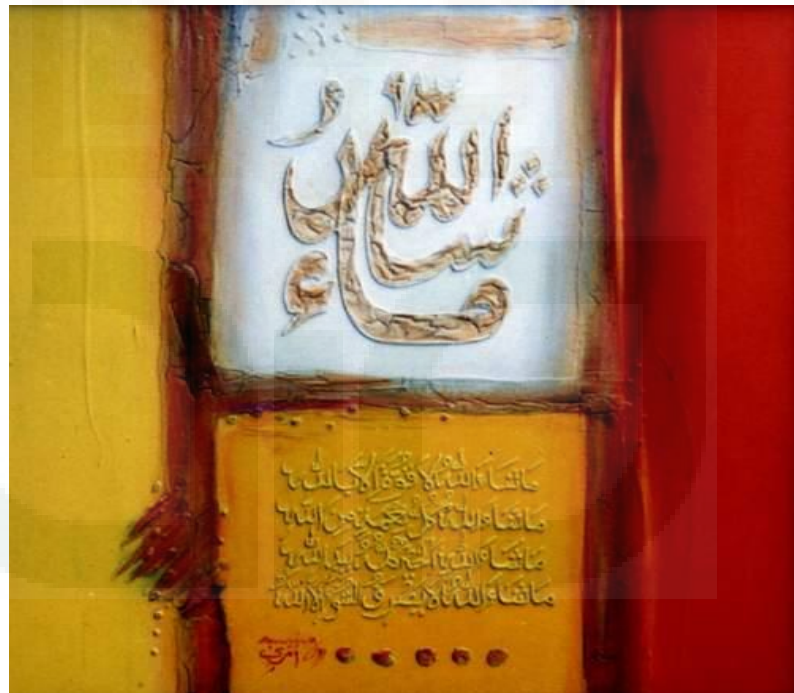 ما شاء الله
مَا شَاءَ اللهُ لَا قُوَّةَ إِلَّا بِاللهِ
مَا شَاءَ اللهُ كُلُّ نِعْمَةٍ مِنَ اللهِ
مَا شَاءَ اللهُ الْخَيْرُ كُلُّهُ بِيَدِ اللهِ
مَا شَاءَ اللهُ لَا يَصْرِفُ السُّوءَ إِلَّا اللهُ